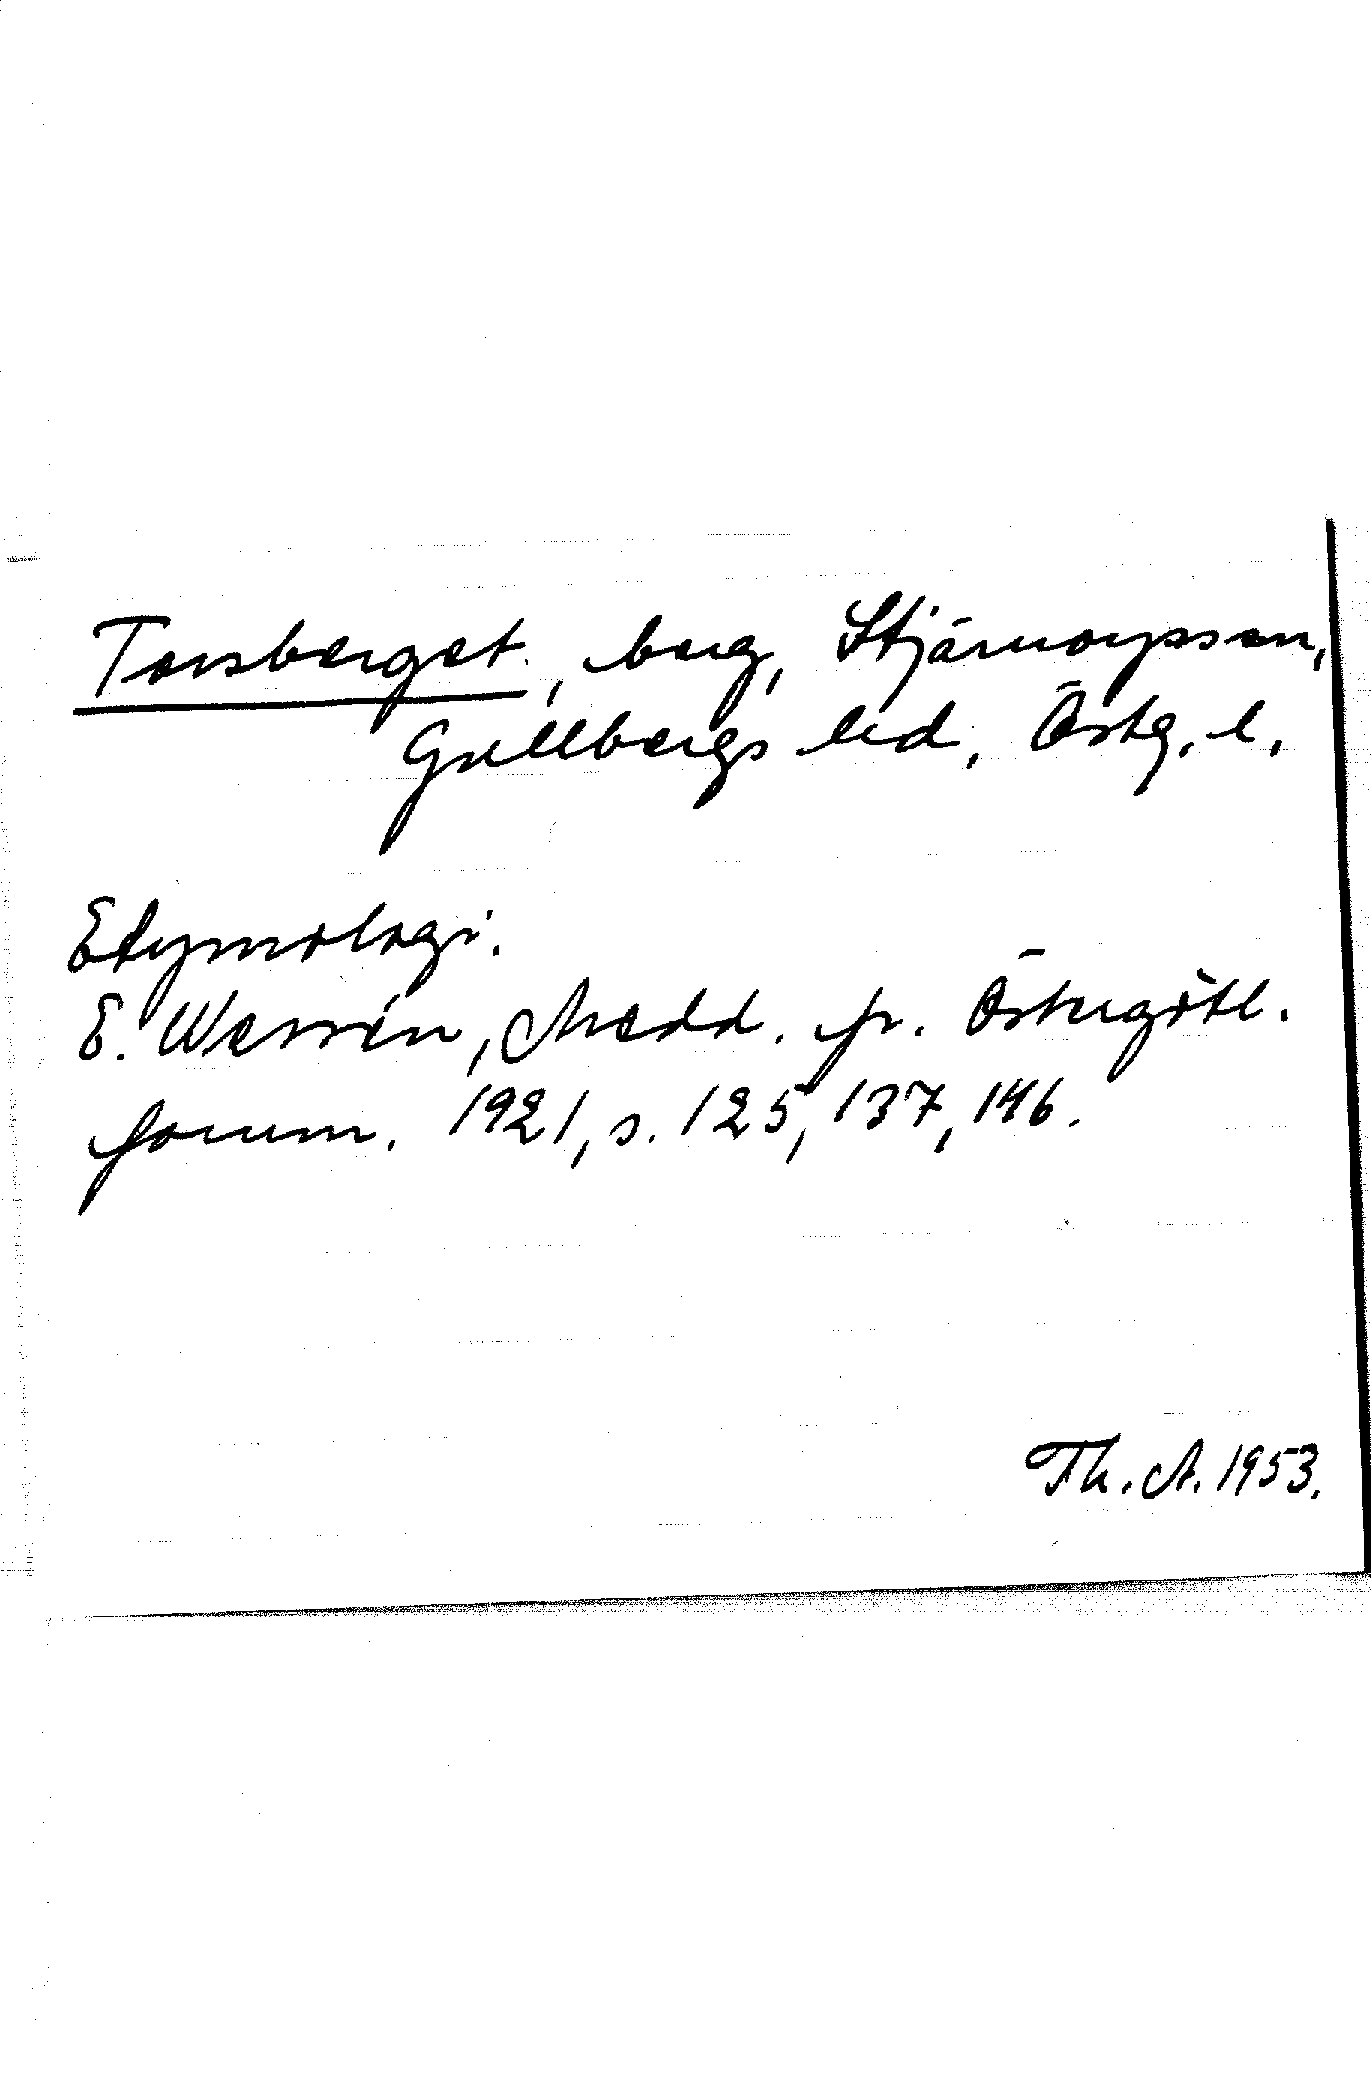 Torsberget, berg, Stjärnorps sn,
Gullbergs hd, Östg. l.
Etymologi.
E. Wessén, Medd. fr. Östergötl.
fornm. 1921, s. 125, 137, 146.
Th. A. 1953.